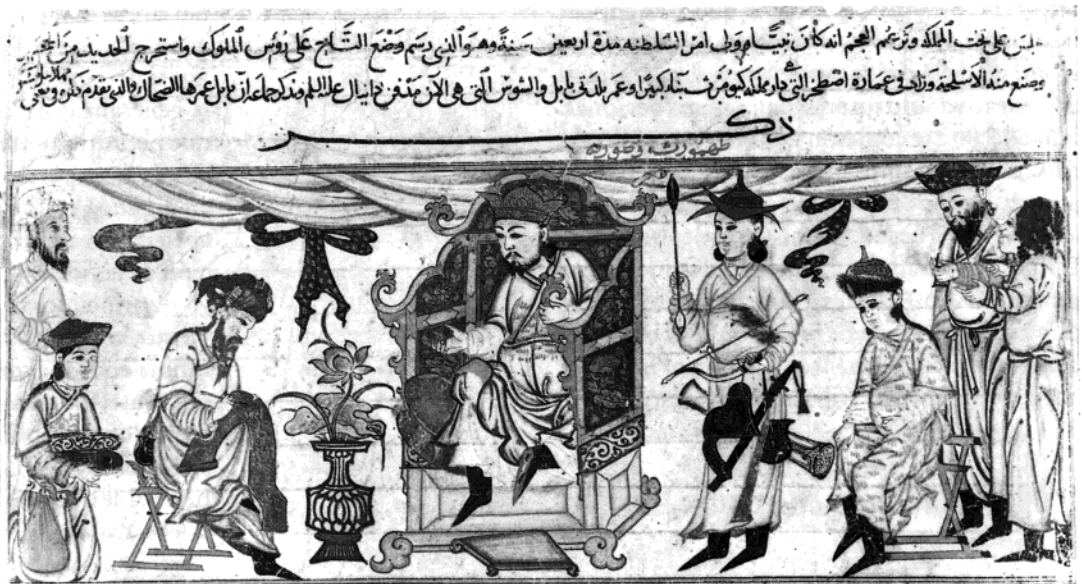 جلس على تخت المملكة وتزعم العجم انه كان نبيا وولى امر السلطنه مدة اربعين سنة وهو الذى رسم وضع التاج على رؤس الملوك واستخرج الحديد من الحجر
وصنع منه الاسلحة وزاد فى عمارة اصطخر التى دار مملكة كيومرث بناء كبيرا وعمر بلدتى بابل والسوس التى هى الآن مدفن دانيال عليه السلم وذكر جماعة ان بابل عمرها الضحاك والذى تقدم ذكره
ذكر
طهمورث وصورته